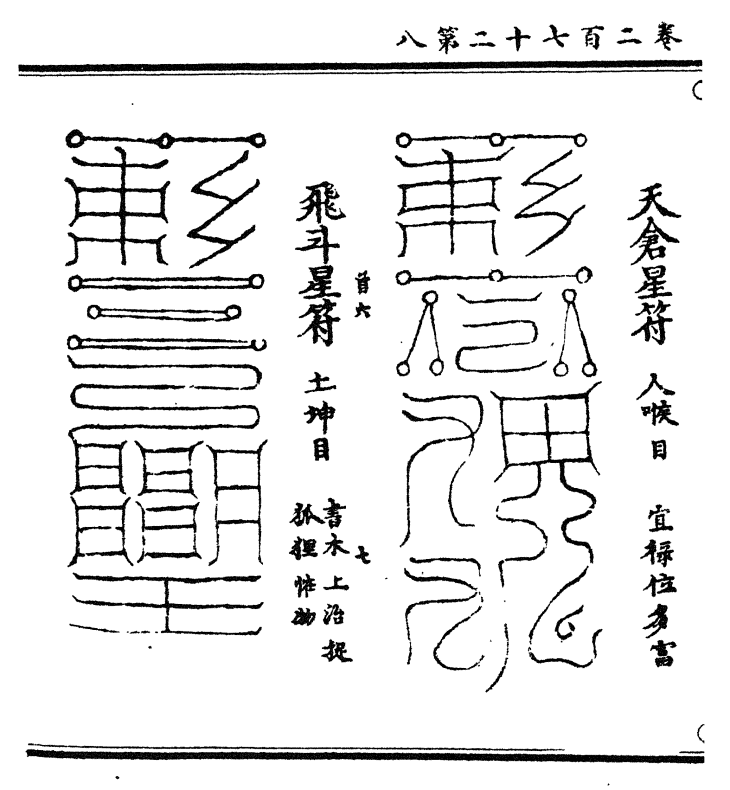 卷二百七十二第八
天倉星符 人喉目 宜祿位多富
首六
七
飛斗星符 土坤目 書木上治捉
狐狸怪